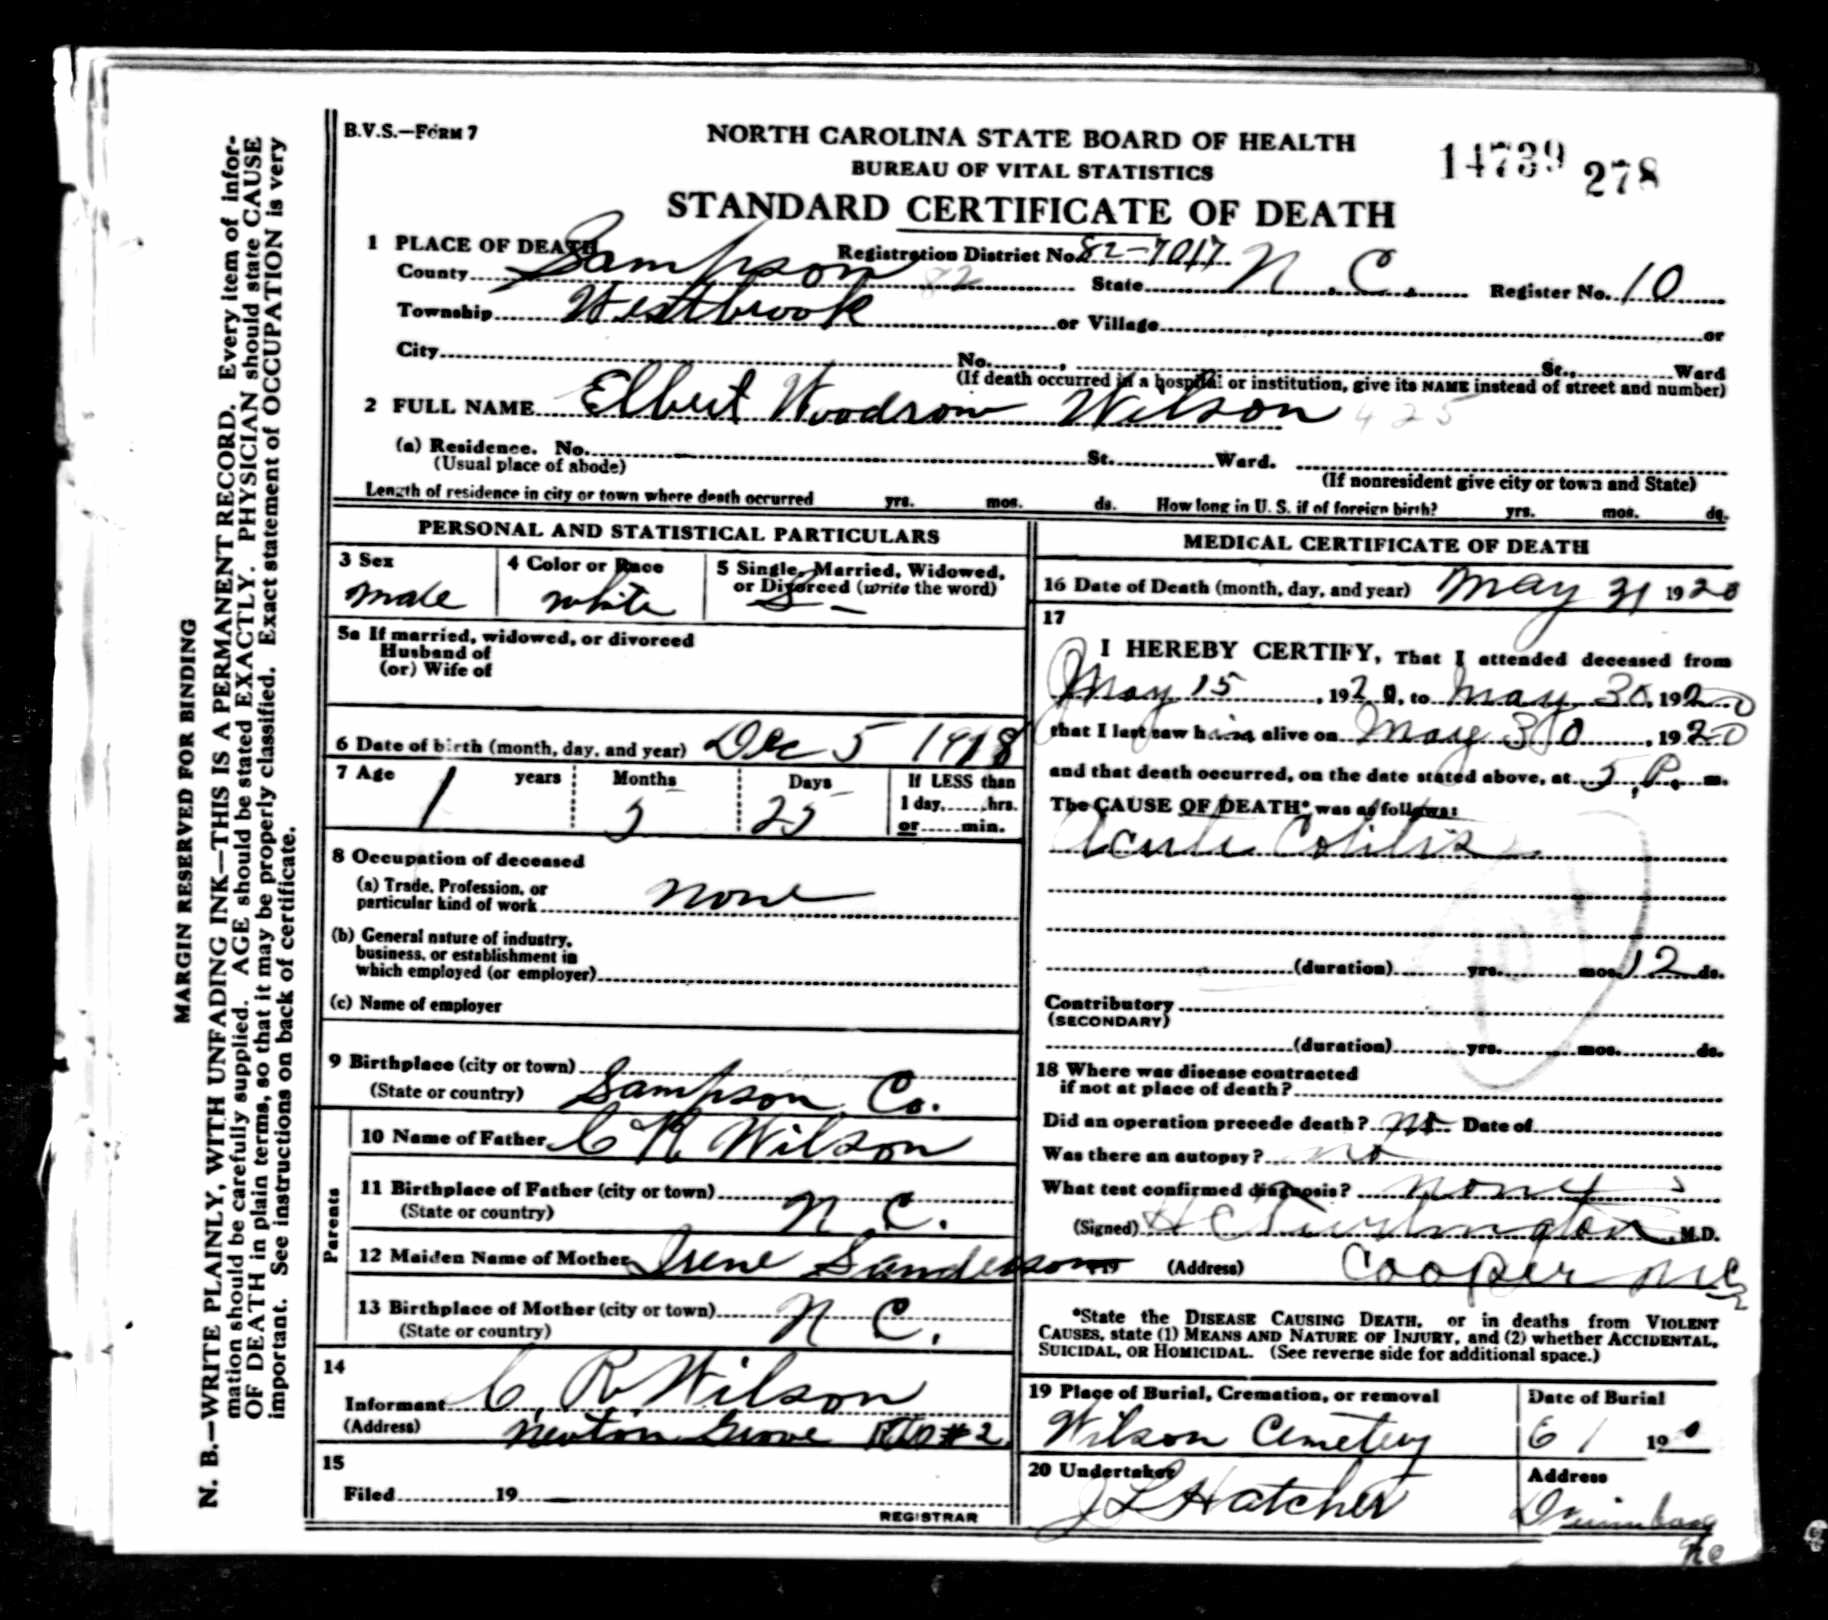 B.V.S.—FORM 7
NORTH CAROLINA STATE BOARD OF HEALTH
BUREAU OF VITAL STATISTICS
STANDARD CERTIFICATE OF DEATH
14739 278
1 PLACE OF DEATH Registration District No. 82-7017
County Sampson 82 State N. C. Register No. 10
Township Westbrook or Village or
City No. , St., Ward
(If death occurred in a hospital or institution, give its NAME instead of street and number)
2 FULL NAME Elbert Woodrow Wilson 425
(a) Residence. No. St. Ward.
(Usual place of abode) (If nonresident give city or town and State)
Length of residence in city or town where death occurred yrs. mos. ds. How long in U. S. if of foreign birth? yrs. mos. ds.
PERSONAL AND STATISTICAL PARTICULARS
3 Sex 4 Color or Race 5 Single, Married, Widowed, or Divorced (write the word)
male white S -
5a If married, widowed, or divorced
Husband of
(or) Wife of
6 Date of birth (month, day, and year) Dec 5 1918
7 Age 1 years 5 Months 25 Days If LESS than
1 day, hrs.
or min.
8 Occupation of deceased
(a) Trade, Profession, or
particular kind of work none
(b) General nature of industry,
business, or establishment in
which employed (or employer)
(c) Name of employer
9 Birthplace (city or town)
(State or country) Sampson Co.
Parents
10 Name of Father C R Wilson
11 Birthplace of Father (city or town)
(State or country) N. C.
12 Maiden Name of Mother Irene Sanderson
13 Birthplace of Mother (city or town)
(State or country) N C.
14
Informant C. R. Wilson
(Address) Newton Grove #2
15
Filed 19
REGISTRAR
MEDICAL CERTIFICATE OF DEATH
16 Date of Death (month, day, and year) May 31 1920
17
I HEREBY CERTIFY, That I attended deceased from
May 15, 1920, to May 30, 1920
that I last saw him alive on May 30, 1920
and that death occurred, on the date stated above, at 5 P. m.
The CAUSE OF DEATH* was as follows:
Acute Colitis
(duration) yrs. mos. 12 ds.
Contributory
(SECONDARY)
(duration) yrs. mos. ds.
18 Where was disease contracted
if not at place of death?
Did an operation precede death? no Date of
Was there an autopsy? no
What test confirmed diagnosis? none
(Signed) H C Turlington, M.D.
19 (Address) Cooper NC
*State the DISEASE CAUSING DEATH, or in deaths from VIOLENT
CAUSES, state (1) MEANS AND NATURE OF INJURY, and (2) whether ACCIDENTAL,
SUICIDAL, OR HOMICIDAL. (See reverse side for additional space.)
19 Place of Burial, Cremation, or removal Date of Burial
Wilson Cemetery 6 1 19
20 Undertaker Address
J L Hatcher
NC
MARGIN RESERVED FOR BINDING
N. B.—WRITE PLAINLY, WITH UNFADING INK—THIS IS A PERMANENT RECORD. Every item of infor-
mation should be carefully supplied. AGE should be stated EXACTLY. PHYSICIAN should state CAUSE
OF DEATH in plain terms, so that it may be properly classified. Exact statement of OCCUPATION is very
important. See instructions on back of certificate.